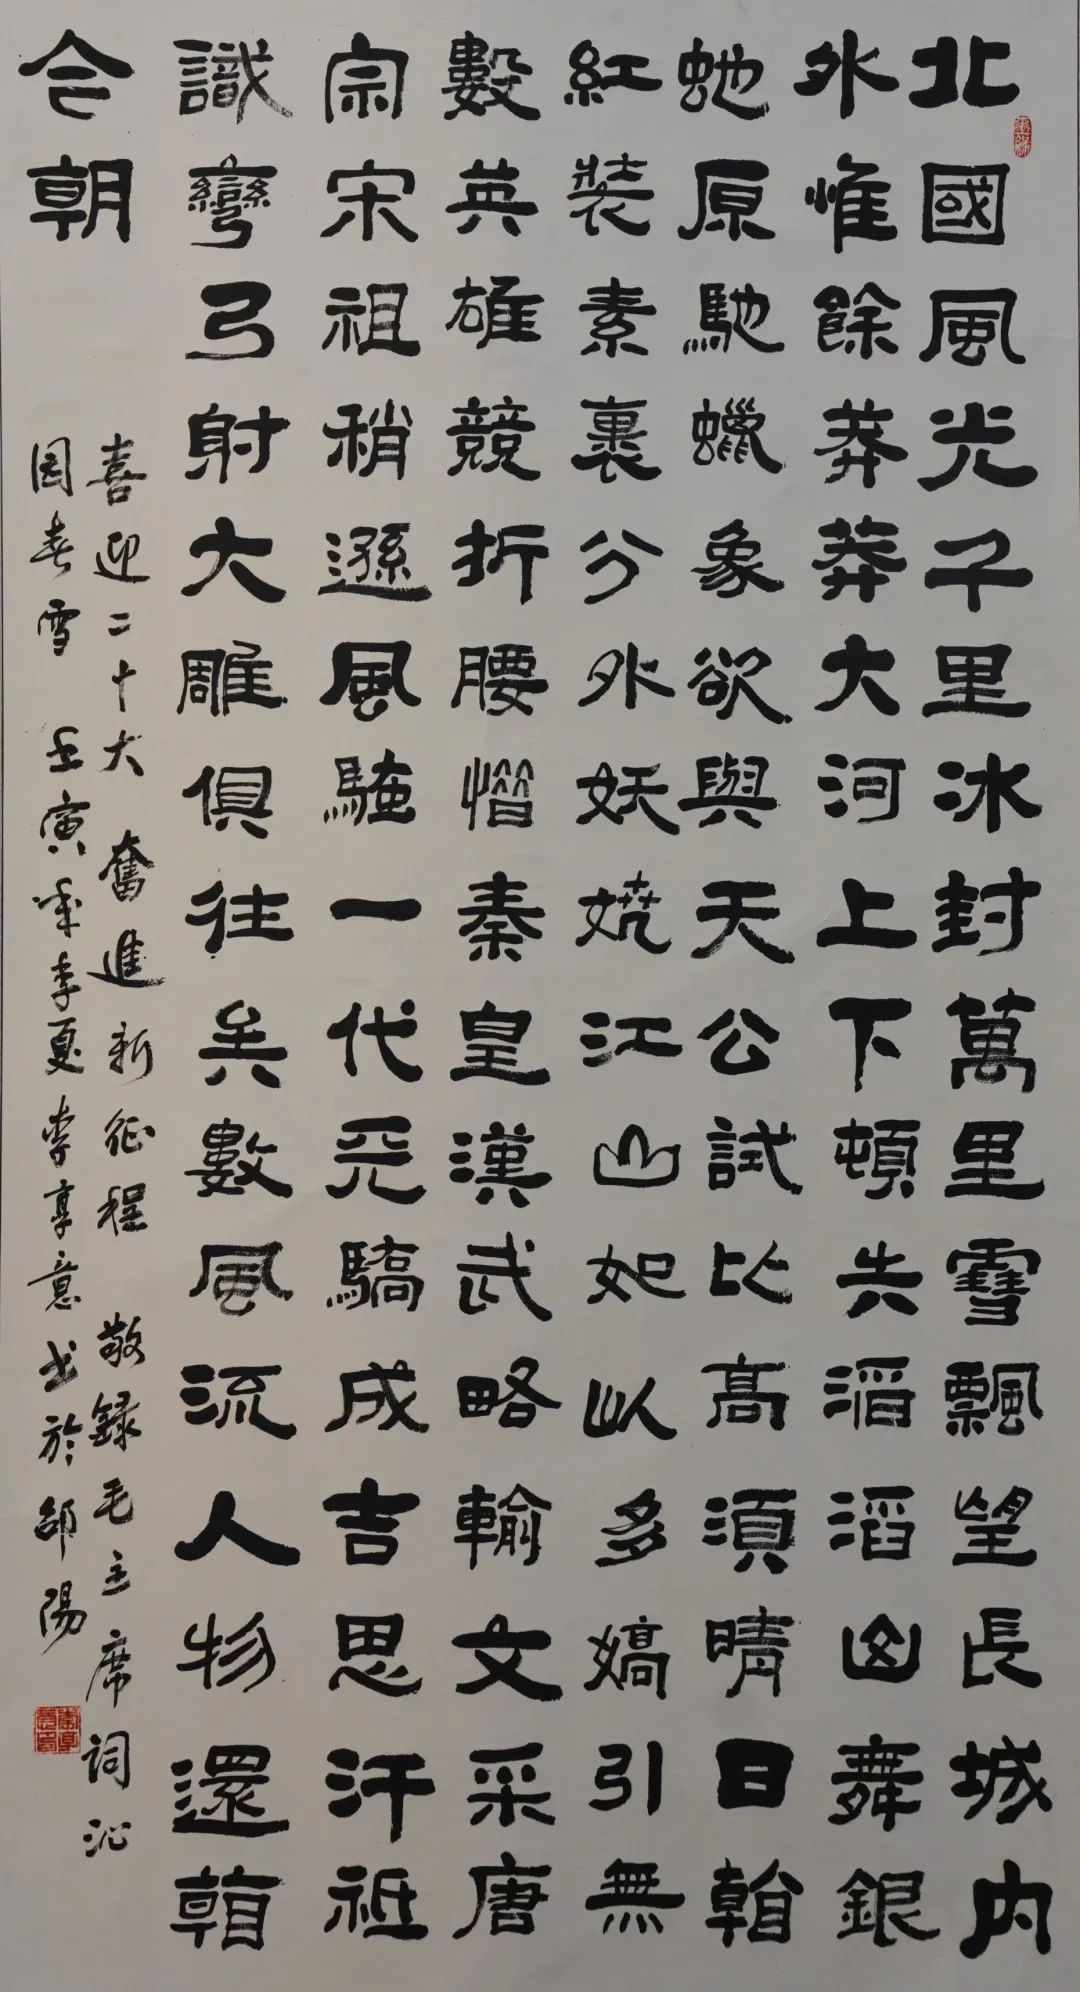 北國風光千里冰封萬里雪飄望長城内
外惟餘莽莽大河上下頓失滔滔山舞銀
虵原馳蠟象欲與天公試比高須晴日看
紅裝素裹分外妖嬈江山如此多嬌引無
數英雄競折腰惜秦皇漢武略輸文采唐
宗宋祖稍遜風騷一代天驕成吉思汗祇
識彎弓射大雕俱往矣數風流人物還看
今朝
喜迎二十大 奮進新征程 敬録毛主席詞沁
園春雪 壬寅年季夏李享意书於邵陽